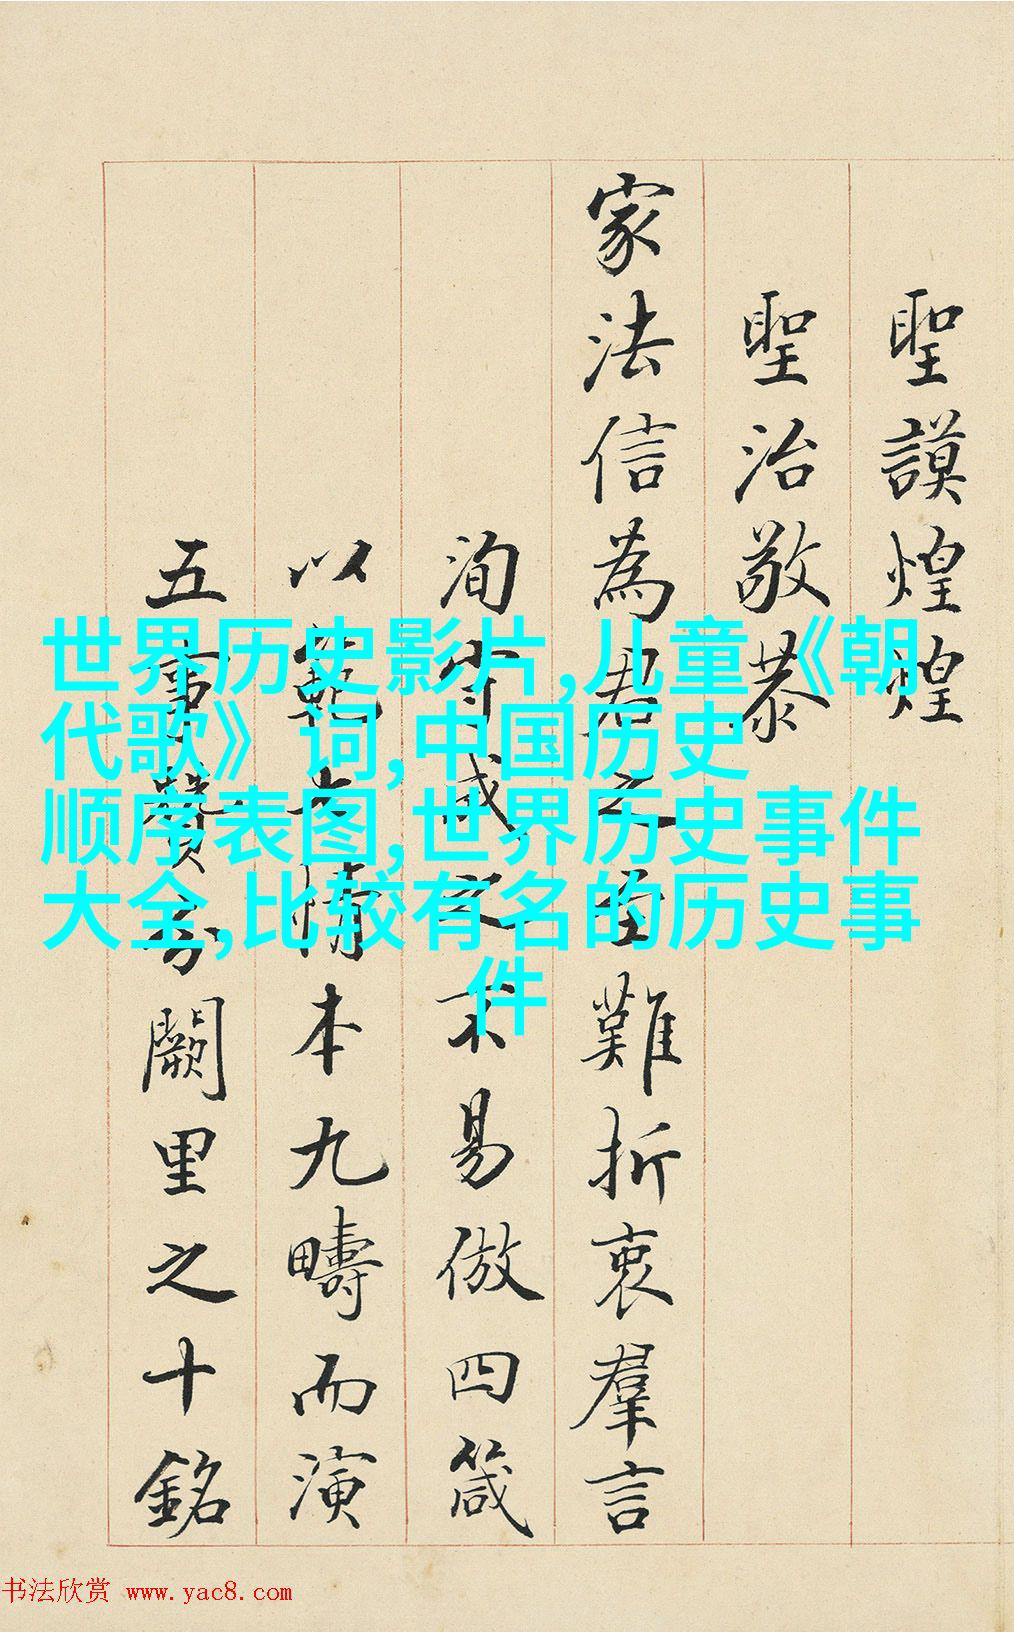 聖謨煌煌
聖治敬恭
家法信為君之至難折衷羣言
洵守成之不易倣四箴
以範情本九疇而演
五事贊闕里之十銘
世界历史影片,儿童《朝
代歌》词,中国历史
顺序表图,世界历史事件
大全,比较有名的历史事
件
书法欣赏 www.yac8.com